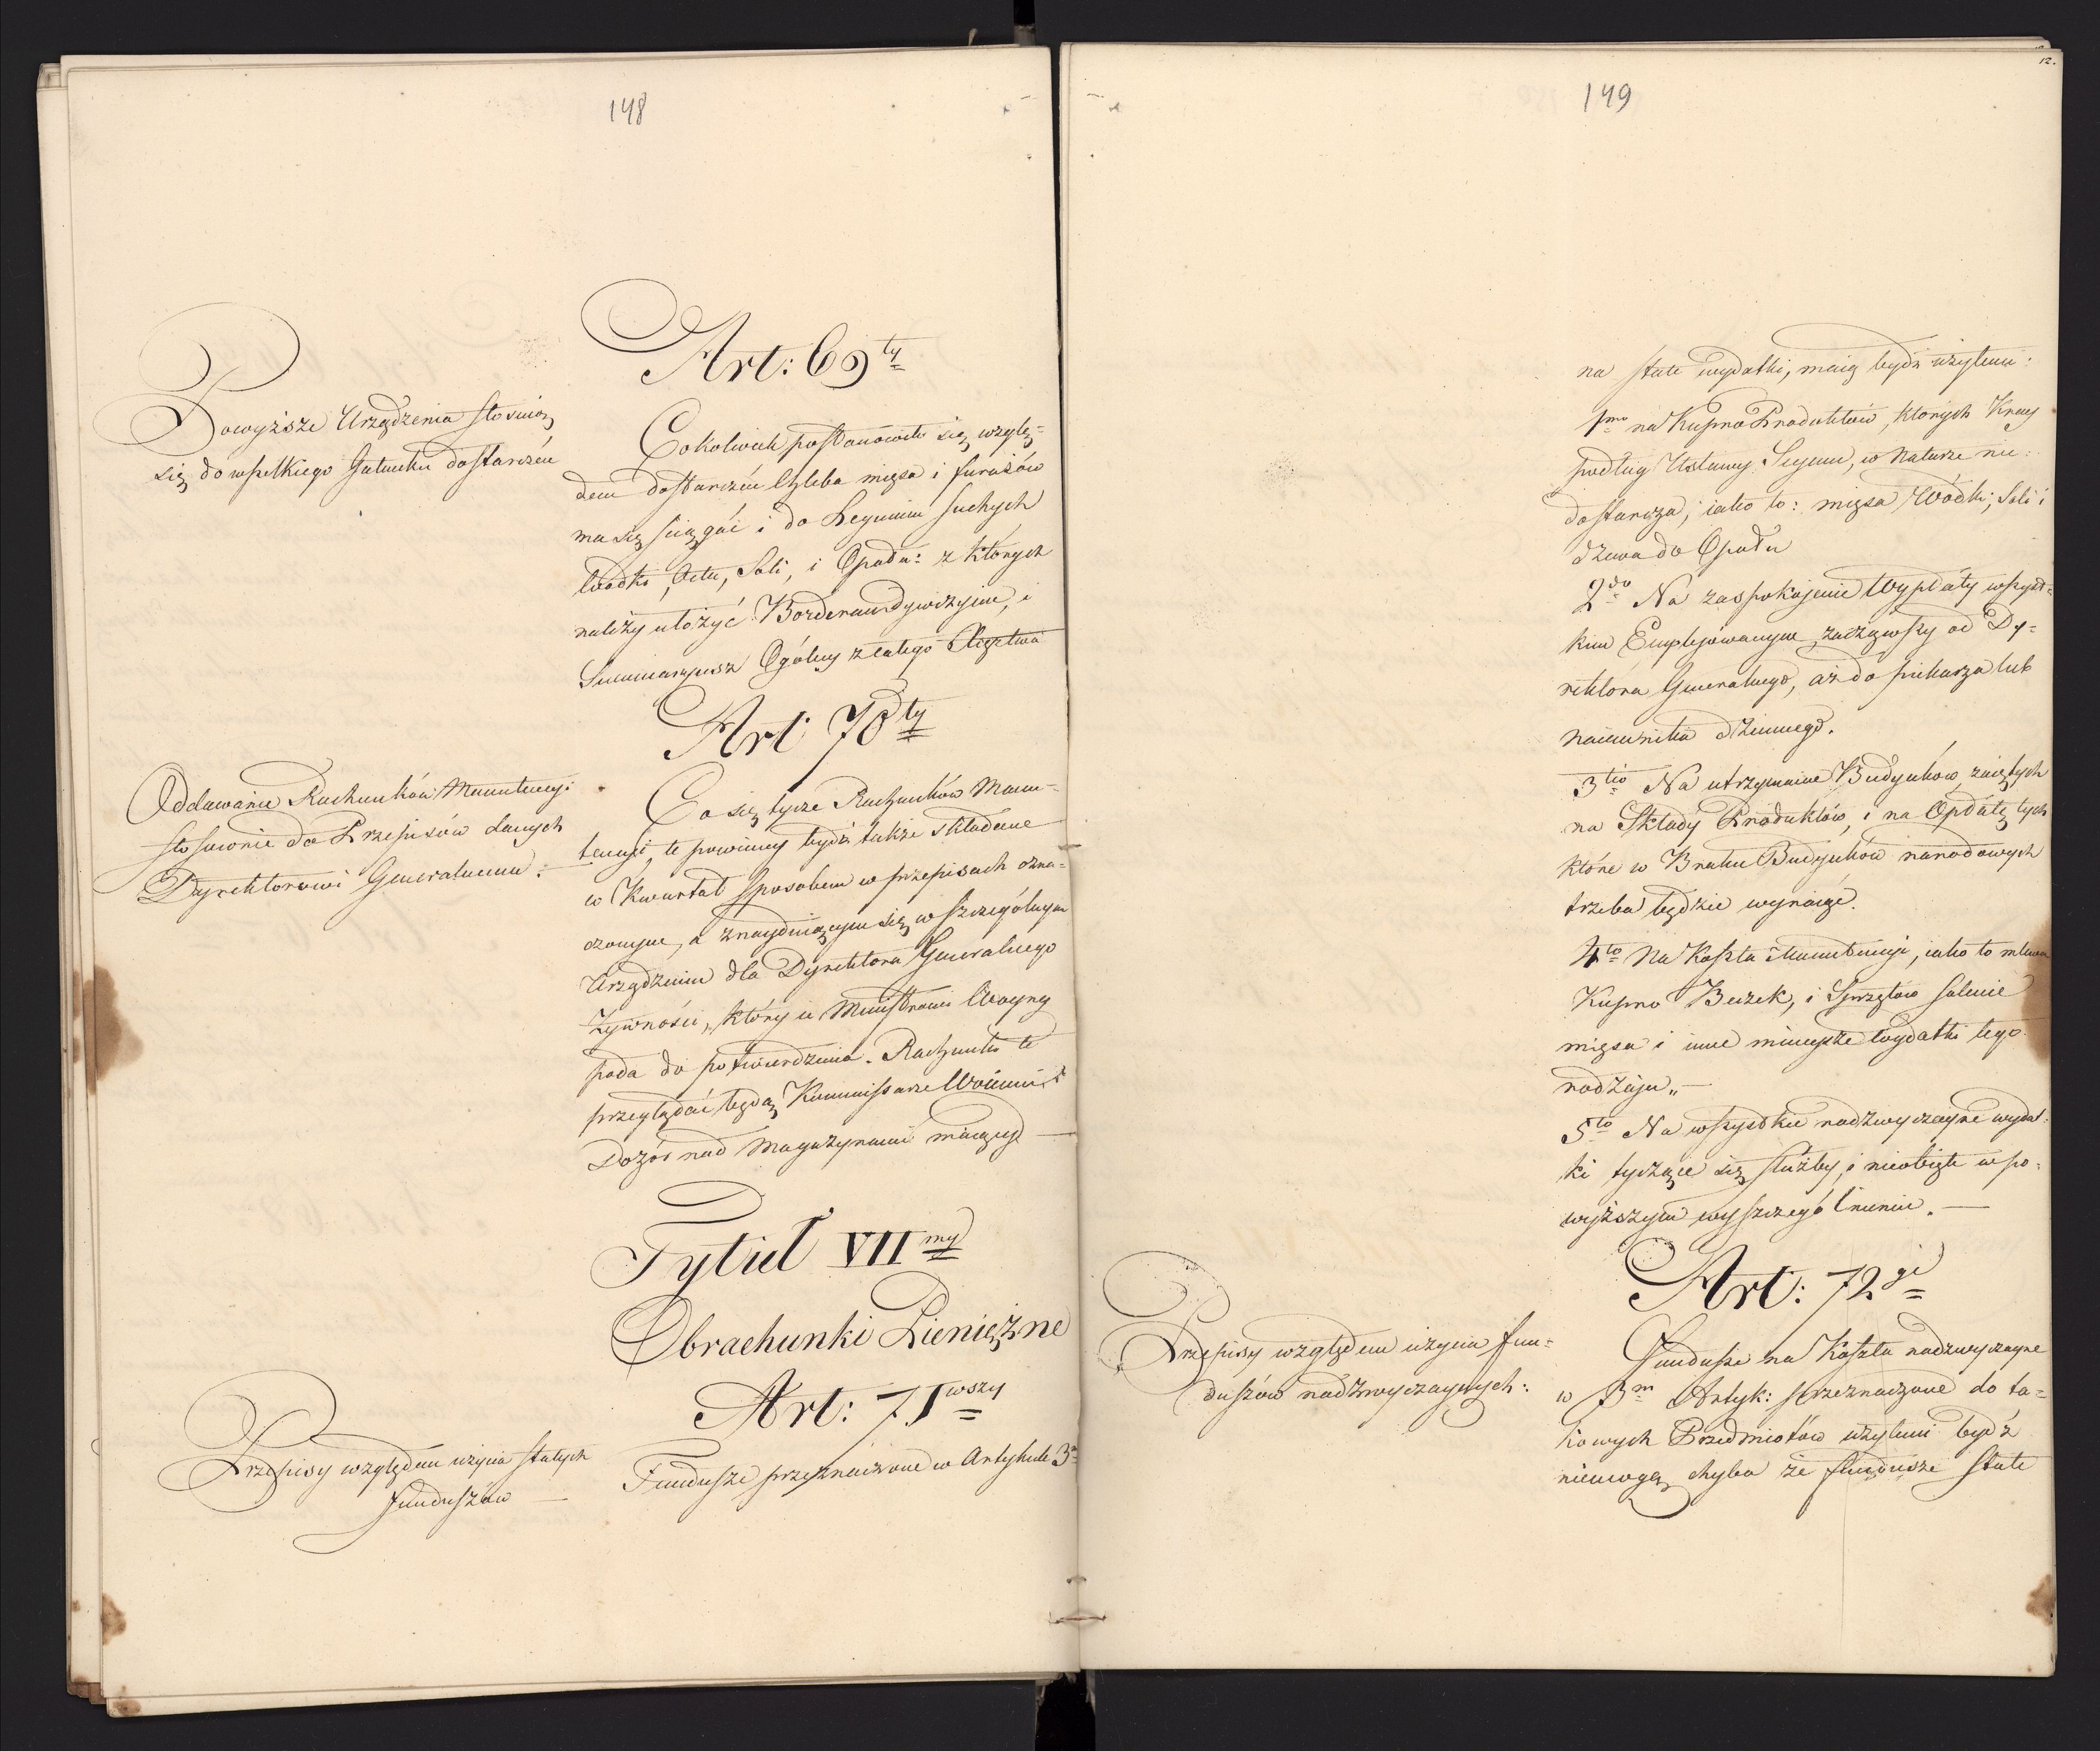 148
Art: 69ty
Powyższe Urządzenia stosuią
się do wszelkiego Gatunku dostarczeń
Cokolwiek postanowiło się wzglę=
dem dostarczeń Chleba mięsa i furażów
ma się ściągać i do Legumin suchych
Wódki, Octu, Soli, i Opału: z których
należy ułożyć Borderau dywizyine, i
Summaryusz Ogólny z całego Xięztwa
Art: 70ty
Oddawanie Rachunków Manutencyi
stosownie do Przepisów danych
Dyrektorowi Generalnemu.
Co się tycze Rachunków Manu=
tencyi, te powinny bydź także składane
w Kwartał sposobem w przepisach ozna=
czonym, a znayduiącym się w szczególnym
Urządzeniu dla Dyrektora Generalnego
Żywności, który ie Ministrowi Woyny
poda do potwierdzenia. Rachunki te
przeglądać będą Kommissarze Woienni
Dozór nad Magazynami maiący
Tytuł VIImy
Obrachunki Pieniężne
Art: 71wszy
Przepisy względem użycia stałych
Funduszów
Fundusze przeznaczone w Artykule 3m
12.
149
na stałe wydatki, maią bydź użytemi:
1mo na Kupno Produktów, których Kray
podług Ustawy Seymu, w Naturze nie
dostarcza, iako to: mięsa Wódki, Soli i
drzewa do Opału
2do Na zaspokojenie Wypłaty wszyst=
kim Employowanym, zacząwszy od Dy=
rektora Generalnego, aż do piekarza lub
naiemnika dziennego.
3tio Na utrzymanie Budynków zaiętych
na Składy Produktów, i na Opłatę tych
które w Braku Budynków narodowych
trzeba będzie wynaiąć.
4to Na Koszta Manutencyi, iako to mlewa
Kupno Beczek, i Sprzętów solenie
mięsa i inne mnieysze wydatki tego
rodzaju.
5to Na wszystkie nadzwyczayne wydat=
ki tyczące się służby, i nieobięte w po=
wyższym wyszczególnieniu.
Art: 72gi
Przepisy względem użycia fun=
duszów nadzwyczaynych:
Fundusze na Koszta nadzwyczayne
w 3m Artyk: przeznaczone do ta=
kowych Przedmiotów użytemi bydź
niemogą, chyba że fundusze stałe